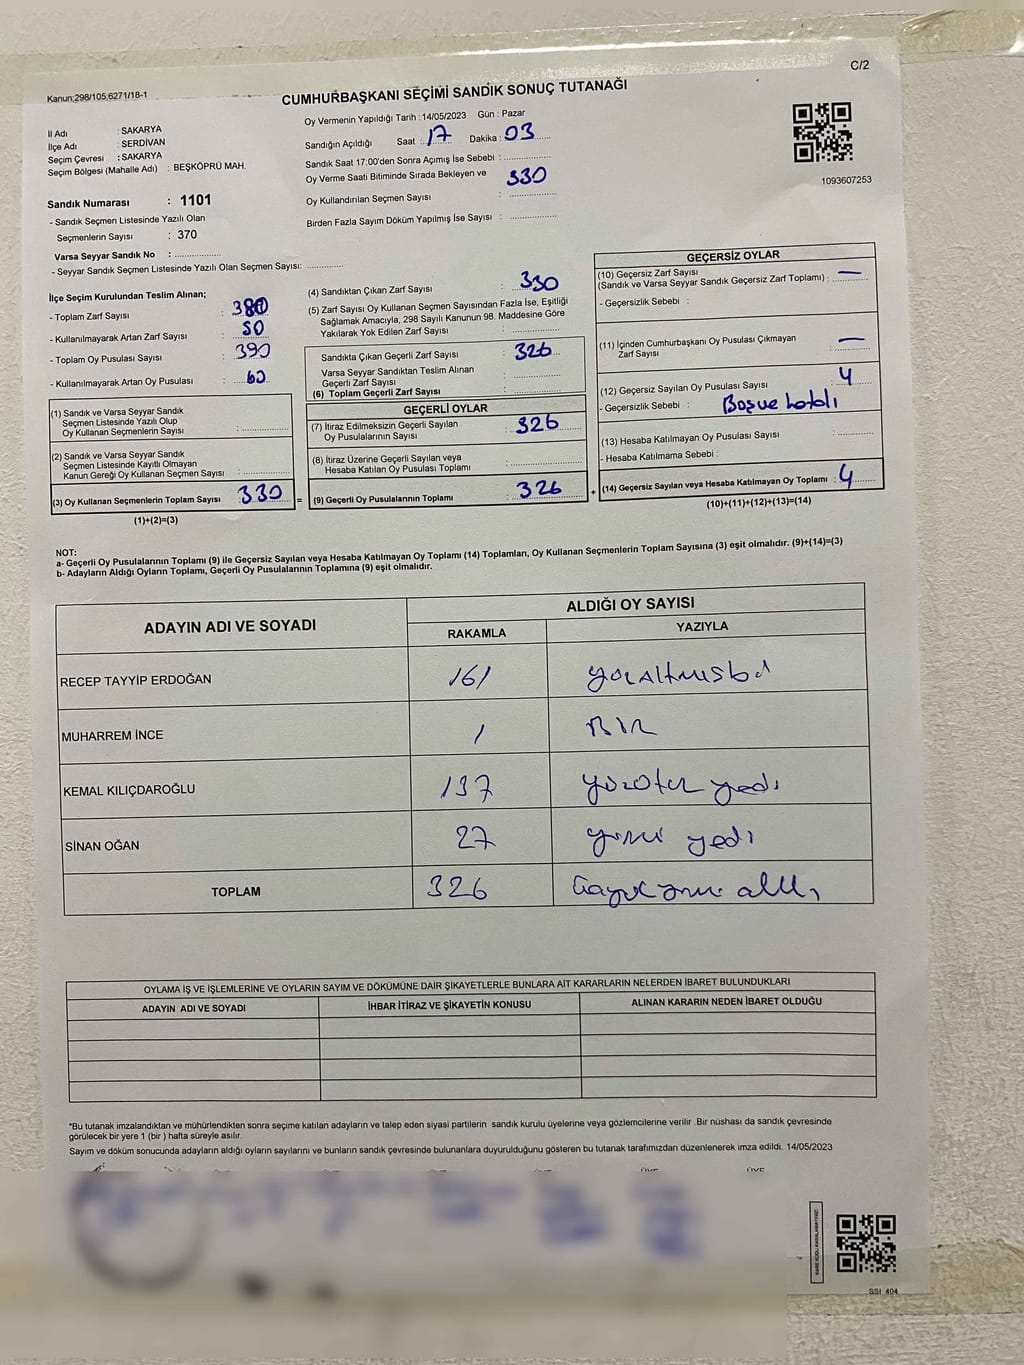 C/2
Kanun:298/105,6271/18-1
CUMHURBAŞKANI SEÇİMİ SANDIK SONUÇ TUTANAĞI
İl Adı : SAKARYA
İlçe Adı : SERDİVAN
Seçim Çevresi : SAKARYA
Seçim Bölgesi (Mahalle Adı) : BEŞKÖPRÜ MAH.
Sandık Numarası : 1101
- Sandık Seçmen Listesinde Yazılı Olan
Seçmenlerin Sayısı : 370
Varsa Seyyar Sandık No :
- Seyyar Sandık Seçmen Listesinde Yazılı Olan Seçmen Sayısı:
Oy Vermenin Yapıldığı Tarih : 14/05/2023 Gün : Pazar
Sandığın Açıldığı Saat : 17 Dakika : 03
Sandık Saat 17:00'den Sonra Açımış İse Sebebi :
Oy Verme Saati Bitiminde Sırada Bekleyen ve 330
Oy Kullandırılan Seçmen Sayısı :
Birden Fazla Sayım Döküm Yapılmış İse Sayısı :
1093607253
İlçe Seçim Kurulundan Teslim Alınan;
- Toplam Zarf Sayısı : 380
- Kullanılmayarak Artan Zarf Sayısı : 50
- Toplam Oy Pusulası Sayısı : 390
- Kullanılmayarak Artan Oy Pusulası : 60
(1) Sandık ve Varsa Seyyar Sandık
Seçmen Listesinde Yazılı Olup
Oy Kullanan Seçmenlerin Sayısı :
(2) Sandık ve Varsa Seyyar Sandık
Seçmen Listesinde Kayıtlı Olmayan
Kanun Gereği Oy Kullanan Seçmen Sayısı :
(3) Oy Kullanan Seçmenlerin Toplam Sayısı : 330
(1)+(2)=(3)
=
(4) Sandıktan Çıkan Zarf Sayısı : 330
(5) Zarf Sayısı Oy Kullanan Seçmen Sayısından Fazla İse, Eşitliği
Sağlamak Amacıyla, 298 Sayılı Kanunun 98. Maddesine Göre
Yakılarak Yok Edilen Zarf Sayısı :
Sandıkta Çıkan Geçerli Zarf Sayısı : 326
Varsa Seyyar Sandıktan Teslim Alınan
Geçerli Zarf Sayısı :
(6) Toplam Geçerli Zarf Sayısı :
GEÇERLİ OYLAR
(7) İtiraz Edilmeksizin Geçerli Sayılan
Oy Pusulalarının Sayısı : 326
(8) İtiraz Üzerine Geçerli Sayılan veya
Hesaba Katılan Oy Pusulası Toplamı :
(9) Geçerli Oy Pusulalarının Toplamı : 326
+
GEÇERSİZ OYLAR
(10) Geçersiz Zarf Sayısı : —
(Sandık ve Varsa Seyyar Sandık Geçersiz Zarf Toplamı) :
- Geçersizlik Sebebi :
(11) İçinden Cumhurbaşkanı Oy Pusulası Çıkmayan
Zarf Sayısı : —
(12) Geçersiz Sayılan Oy Pusulası Sayısı : 4
- Geçersizlik Sebebi : Boş ve hatalı
(13) Hesaba Katılmayan Oy Pusulası Sayısı :
- Hesaba Katılmama Sebebi :
(14) Geçersiz Sayılan veya Hesaba Katılmayan Oy Toplamı : 4
(10)+(11)+(12)+(13)=(14)
NOT:
a- Geçerli Oy Pusulalarının Toplamı (9) ile Geçersiz Sayılan veya Hesaba Katılmayan Oy Toplamı (14) Toplamları, Oy Kullanan Seçmenlerin Toplam Sayısına (3) eşit olmalıdır. (9)+(14)=(3)
b- Adayların Aldığı Oyların Toplamı, Geçerli Oy Pusulalarının Toplamına (9) eşit olmalıdır.
ADAYIN ADI VE SOYADI ALDIĞI OY SAYISI
RAKAMLA YAZIYLA
RECEP TAYYİP ERDOĞAN 161
MUHARREM İNCE 1 BİR
KEMAL KILIÇDAROĞLU 137 yüzotuz yedi
SİNAN OĞAN 27 yirmi yedi
TOPLAM 326
OYLAMA İŞ VE İŞLEMLERİNE VE OYLARIN SAYIM VE DÖKÜMÜNE DAİR ŞİKAYETLERLE BUNLARA AİT KARARLARIN NELERDEN İBARET BULUNDUKLARI
ADAYIN ADI VE SOYADI İHBAR İTİRAZ VE ŞİKAYETİN KONUSU ALINAN KARARIN NEDEN İBARET OLDUĞU
*Bu tutanak imzalandıktan ve mühürlendikten sonra seçime katılan adayların ve talep eden siyasi partilerin sandık kurulu üyelerine veya gözlemcilerine verilir .Bir nüshası da sandık çevresinde
görülecek bir yere 1 (bir ) hafta süreyle asılır.
Sayım ve döküm sonucunda adayların aldığı oyların sayılarını ve bunların sandık çevresinde bulunanlara duyurulduğunu gösteren bu tutanak tarafımızdan düzenlenerek imza edildi. 14/05/2023
SSİ 404